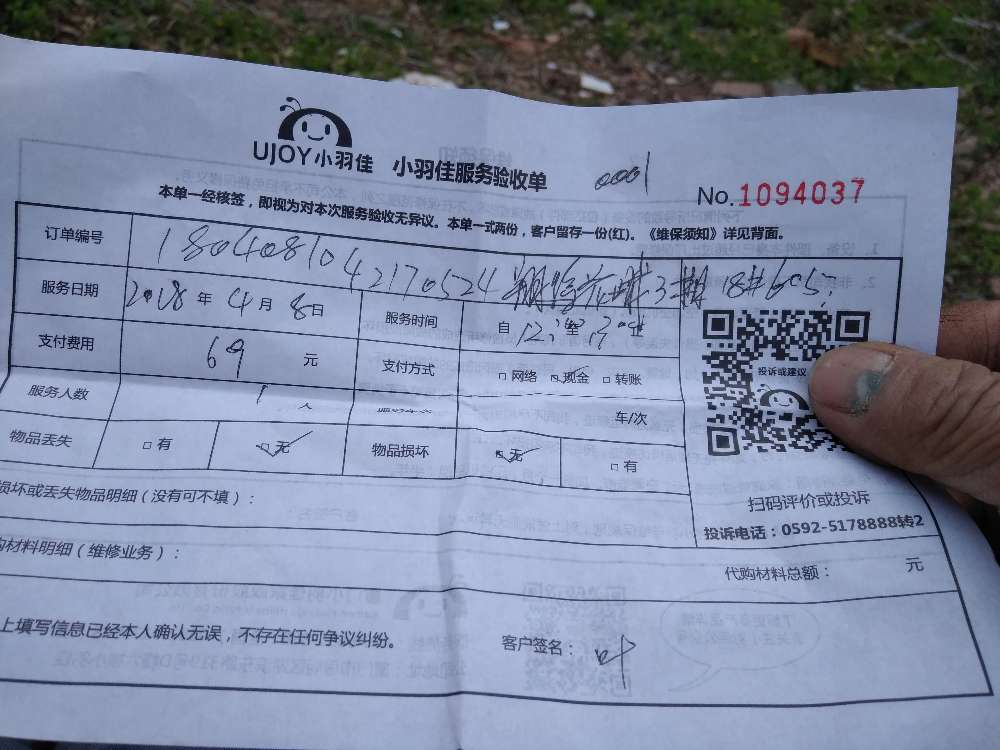 UJOY小羽佳 小羽佳服务验收单 0001
No.1094037
本单一经核签，即视为对本次服务验收无异议。本单一式两份，客户留存一份(红)。《维保须知》详见背面。
订单编号 1804081042170524 3期 18#605
服务日期 2018年4月8日 服务时间 自12: 至
支付费用 69元 支付方式 □网络 □现金 □转账
投诉或建议
服务人数 1人 车/次
物品丢失 □有 □无 物品损坏 □无 □有
扫码评价或投诉
损坏或丢失物品明细（没有可不填）：
投诉电话：0592-5178888转2
购材料明细（维修业务）：
代购材料总额： 元
上填写信息已经本人确认无误，不存在任何争议纠纷。
客户签名：叶